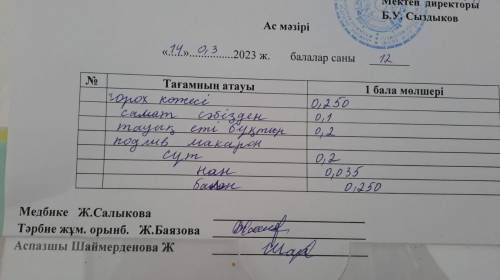 Мектеп директоры
Б.У. Сыздыков
Ас мәзірі
«14» 0,3 2023 ж. балалар саны 12
№ Тағамның атауы 1 бала мөлшері
горох көжесі 0,250
салат сәбізден 0,1
тауық еті бұқтыр 0,2
подлив макарон
сүт 0,2
нан 0,035
банан 0,250
Медбике Ж.Салыкова
Тәрбие жұм. орынб. Ж.Баязова
Аспазшы Шаймерденова Ж